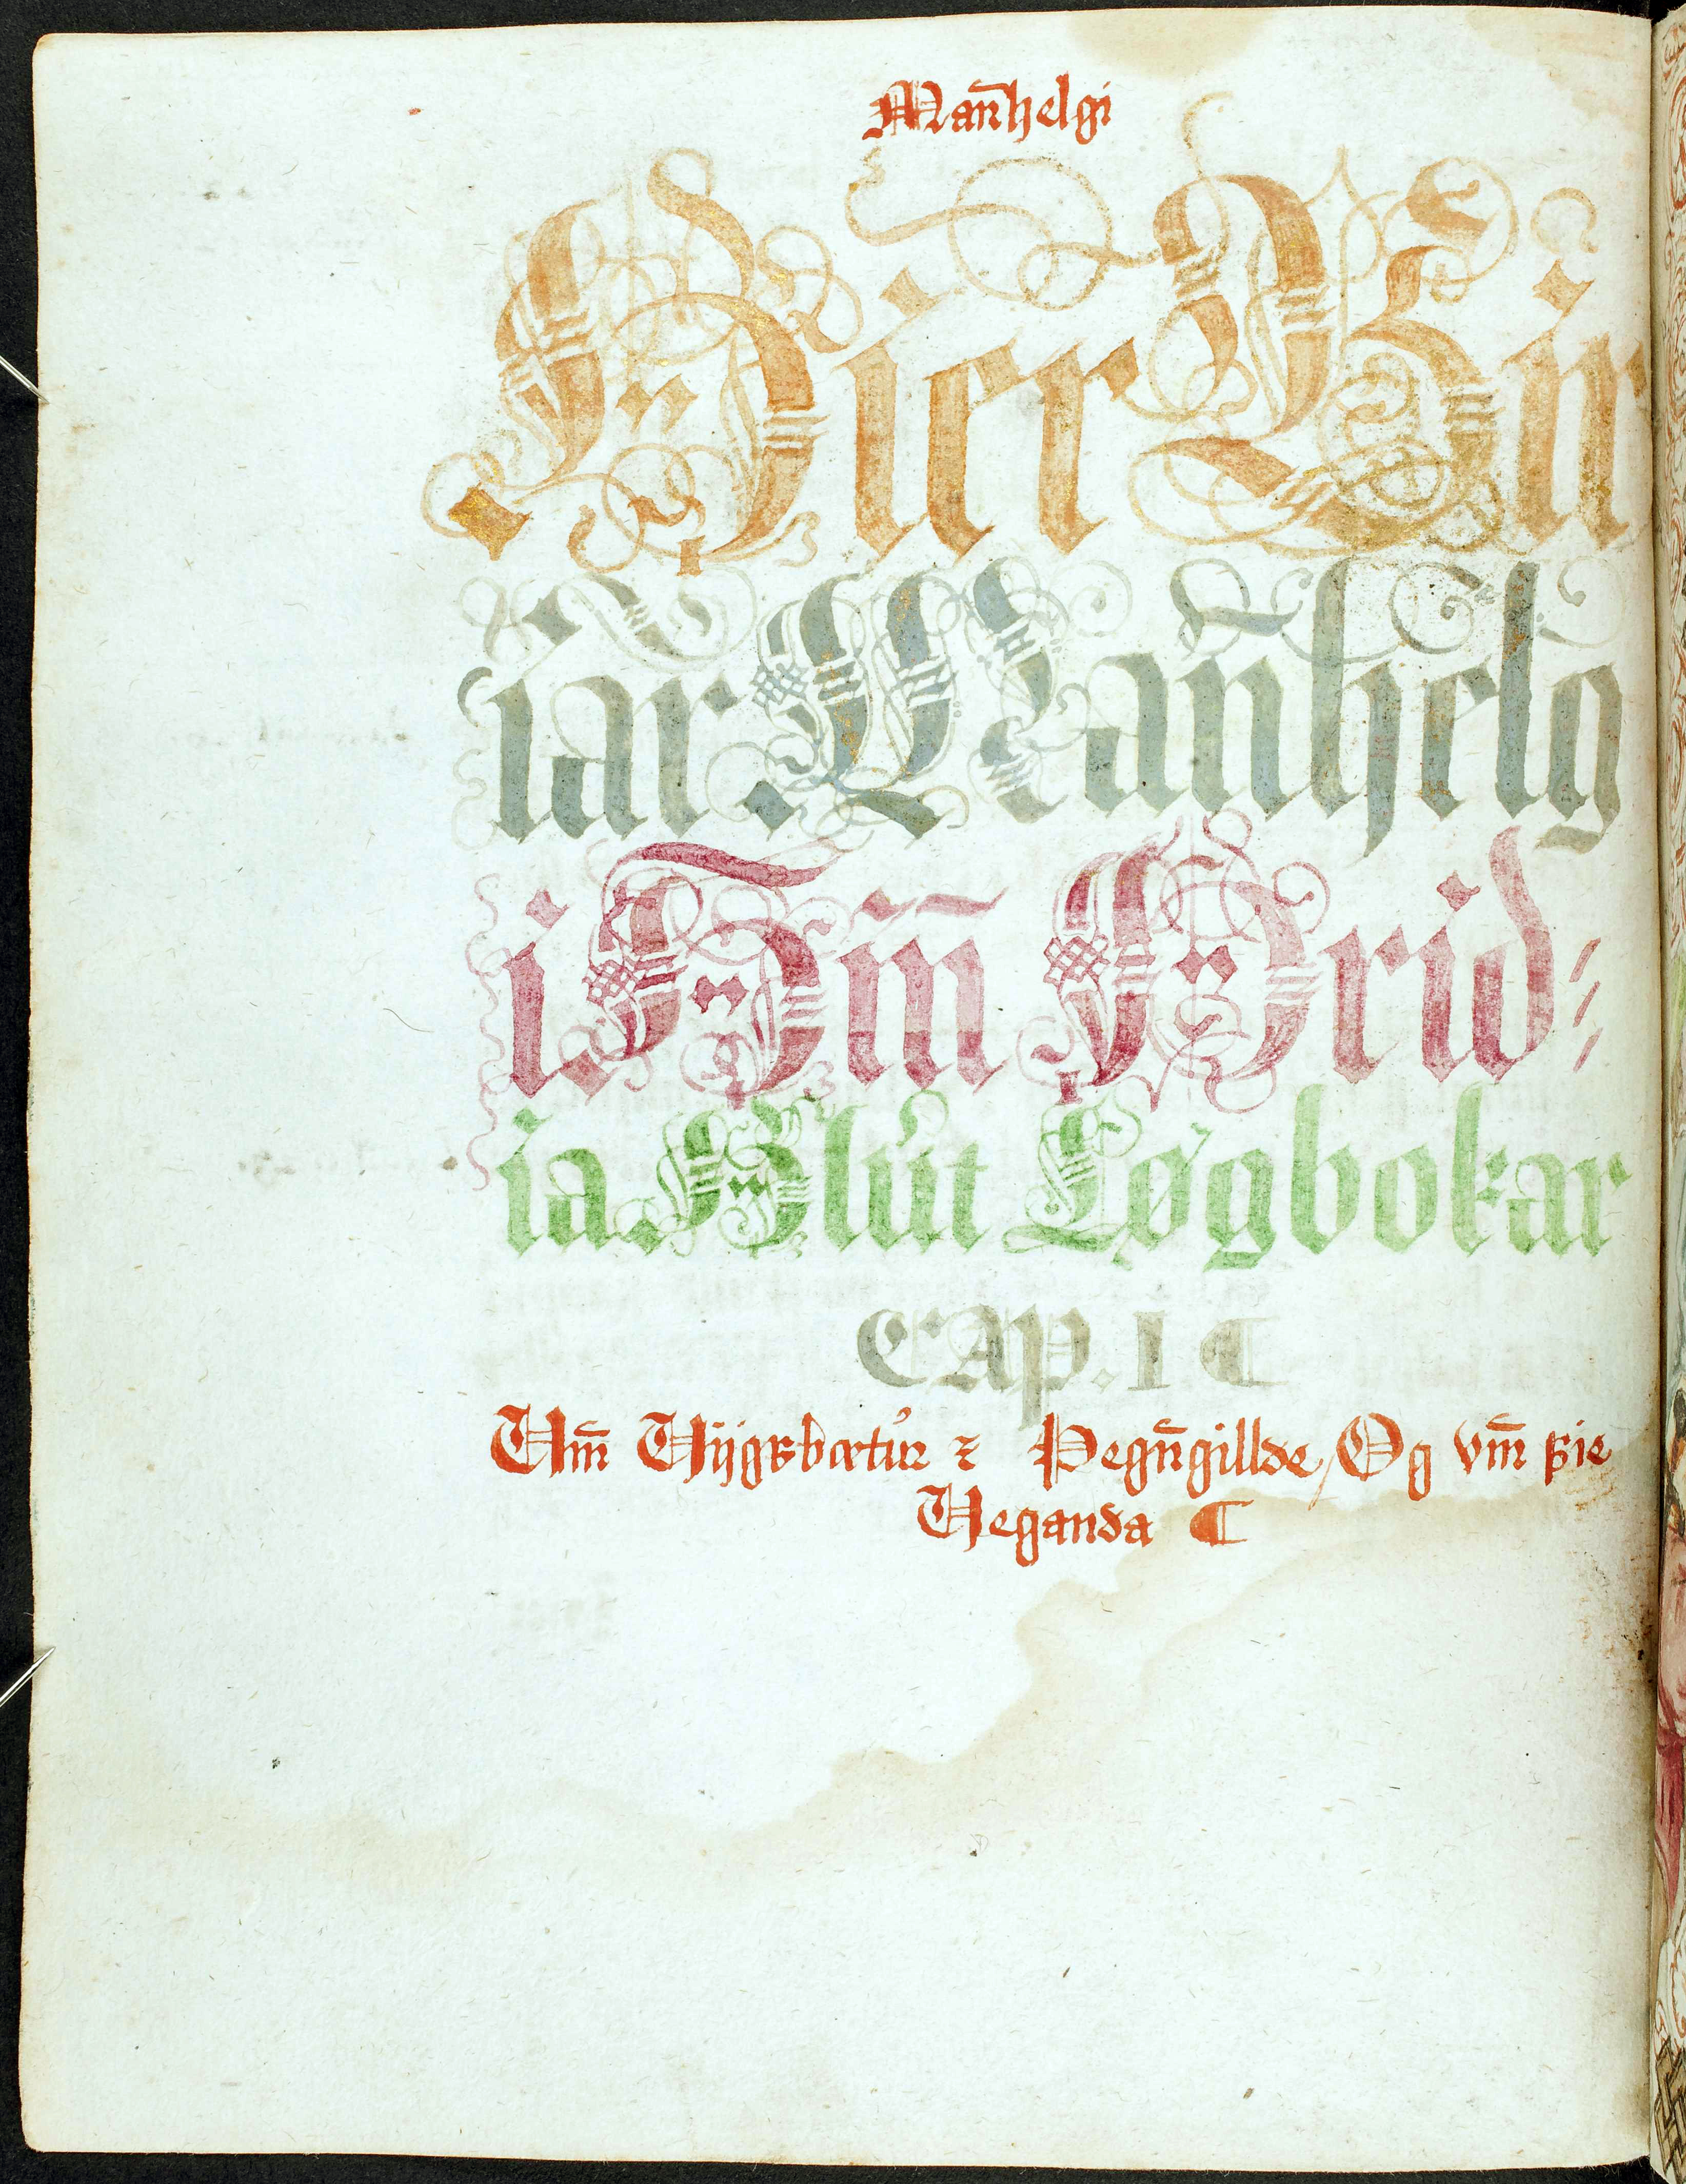 Man̄helgi
Hier Bir
iar Man̄helg
i Hin̄ Þrid⸗
ia Hlut Løgbokar
CAp. I ¶
Um̄ Vijgsbœtur ⁊ Þegn̄gillde, Og vm̄ þie
Veganda ¶